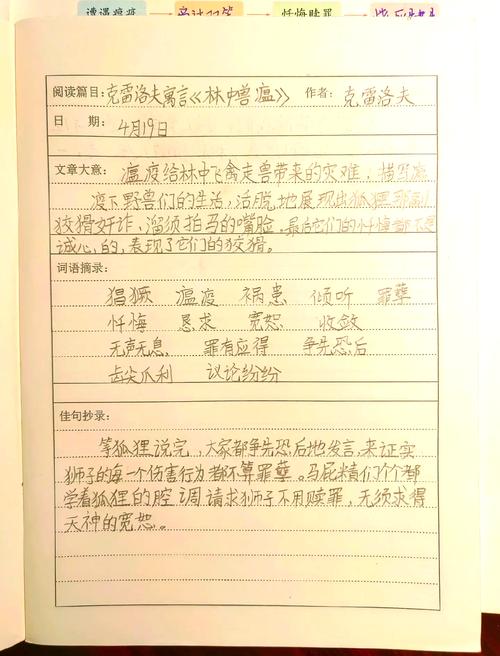 遭遇瘟疫 商讨对策 忏悔赎罪
阅读篇目：克雷洛夫寓言《林中兽瘟》 作者：克雷洛夫
日 期：4月19日
文章大意：瘟疫给林中飞禽走兽带来的灾难，描写瘟
疫下野兽们的生活，活脱地展现出狐狸那副
狡猾奸诈，溜须拍马的嘴脸，最后它们的忏悔都不是
诚心的，表现了它们的狡猾。
词语摘录：
猖獗 瘟疫 祸患 倾听 罪孽
忏悔 恳求 宽恕 收敛
无声无息 罪有应得 争先恐后
齿尖爪利 议论纷纷
佳句抄录：
等狐狸说完，大家都争先恐后地发言，来证实
狮子的每一个伤害行为都不算罪孽。马屁精们个个都
学着狐狸的腔调请求狮子不用赎罪，无须求得
天神的宽恕。